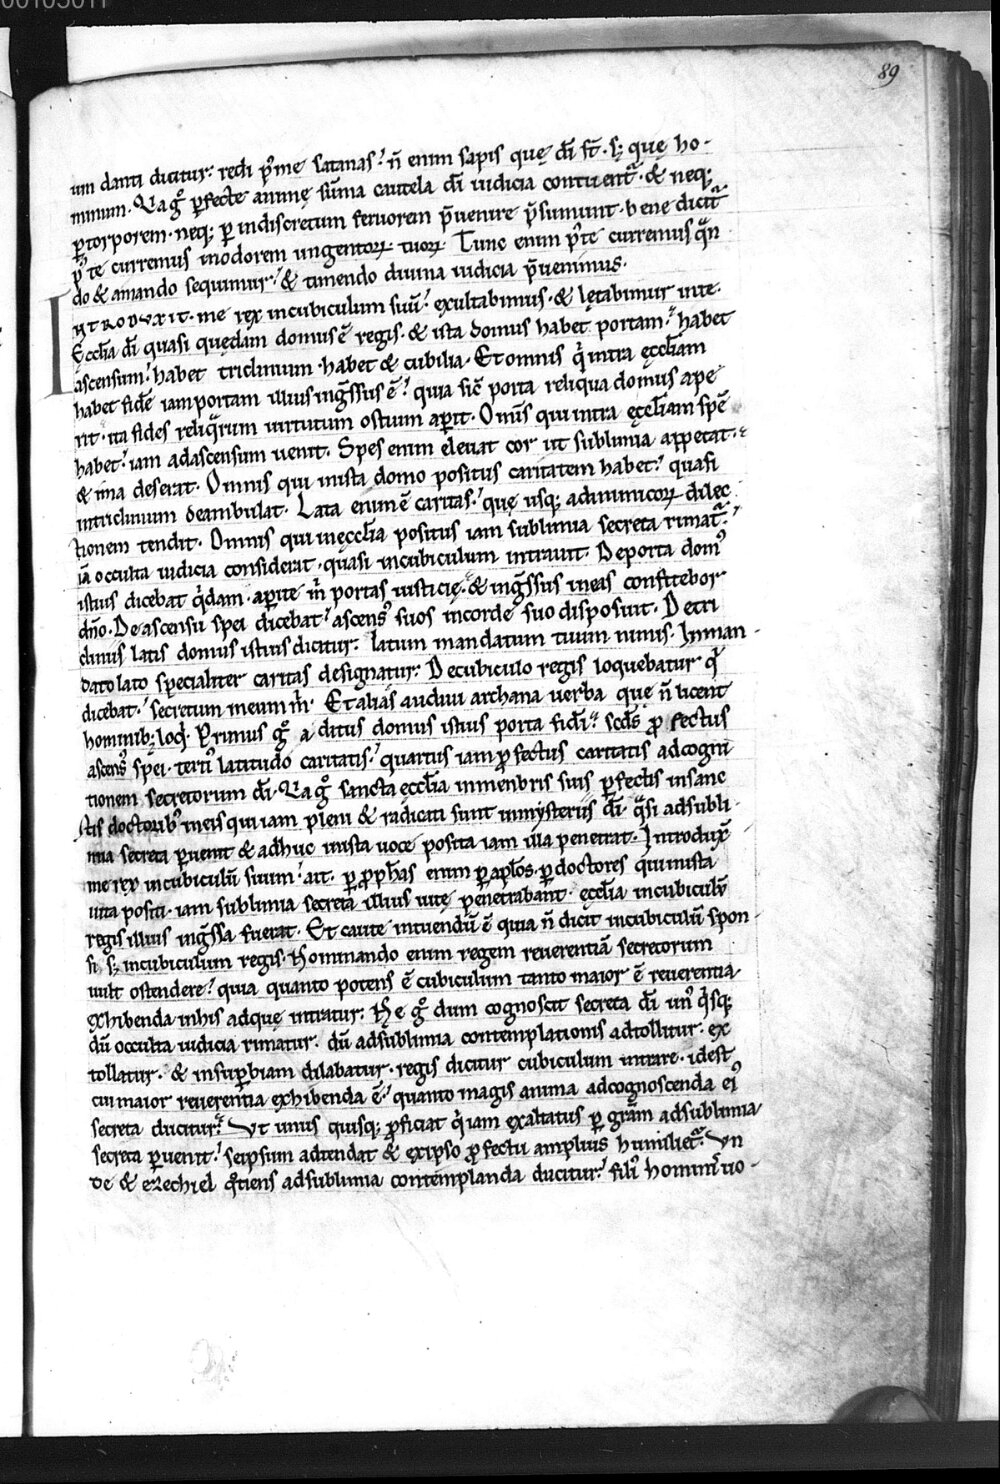 00105011
89
um danti dicitur· redi p᷒ me satanas? n̄ enim sapis quę dī st̄· sꝫ quę ho-
minum· Q̲a g° ꝑfecte animę sūma cautela dī iudicia contuent᷑· & neqꝫ
ꝑ torporem· neqꝫ ꝑ indiscretum feruorem p̄uenire p̄sumunt· bene dicit᷑
p᷒ te curremus in odorem ungentoꝝ tuoꝝ· Tunc enim p᷒ te curremus qn̄
do & amando sequimur? & timendo diuina iudicia p̄uenimus·
INTRODUXIT· me rex in cubiculum suū? exultabimus· & lętabimur in te·
Ęcctia dī quasi quędam domus ē regis· & ista domus habet portam? habet
ascensum? habet triclinium· habet & cubilia· Et omnis qͥ intra ęcctiam
habet fidē iam portam illius ing̃ssus ē? quia sic̄ porta reliqua domus ape
rit· ita fides reliqͣrum uirtutum ostium aꝑit· Omīs qui intra ęcctiam spē
habet? iam ad ascensum uenit· Spes enim eleuat cor ut sublimia appetat·
& ima deserat· Omnis qui in ista domo positus caritatem habet? quasi
in triclinium deambulat· Lata enim ē caritas? quę usqꝫ ad inimicoꝝ dilec
tionem tendit· Omnis qui in ęcctia positus iam sublimia secreta rimat᷑?
iā occulta iudicia considerat· quasi in cubiculum intrauit· De porta dom᷒
istius dicebat qͥdam· aꝑite m̄ portas iusticię· & ing̃ssus in eas confitebor
dn̄o· De ascensu spei dicebat? ascens᷒ suos in corde suo disposuit· De tri
clinus latis domus istius dicitur· latum mandatum tuum nimis· In man-
dato lato specialiter caritas designatur· De cubiculo regis loquebatur qͥ
dicebat? secretum meum m̄· Et alias audiui archana uerba quę n̄ licent
hominibꝫ loqͥ· Primus g° aditus domus istius porta fidei? scd̄s ꝓfectus
ascens᷒ spei· terti᷒ latitudo caritatis? quartus iam ꝓfectus caritatis ad cogni
tionem secretorum dī· Q̲a g° sancta ęcctia in menbris suis ꝑfectis in sanc
tis doctoribꝰ in eis qui iam pleni & radicati sunt in mysteriis dī· qͣsi ad subli-
mia secreta ꝑuenit & adhuc in ista uoce posita iam illa penetrat· Introdux̄
me rex in cubiculū suum? ait· ꝑ ꝓphetas enim ꝑ apl̄os· ꝑ doctores qui in ista
uita positi· iam sublimia secreta illius uitę penetrabant· ęcctia in cubiculū
regis illius ing̃ssa fuerat· Et caute intuendū ē quia n̄ dicit in cubiculū spon-
si sꝫ in cubiculum regis· Nominando enim regem reuerentiā secretorum
uult ostendere? quia quanto potens ē cubiculum tanto maior ē reuerentia
exhibenda in his ad quę intratur· Ne g° dum cognoscit secreta dī un᷒ qͥsqꝫ
dū occulta iudicia rimatur· dū ad sublimia contemplationis adtollitur· ex
tollatur· & in suꝑbiam dilabatur· regis dicitur cubiculum intrare· idest
cui maior reuerentia exhibenda ē? quanto magis anima ad cognoscenda ei᷒
secreta ducitur? Ut unus quisqꝫ ꝓficiat qͥ iam exaltatus ꝑ gr̄am ad sublimia
secreta ꝑuenit? seipsum adtendat & ex ipso ꝓfectu amplius humiliet᷑· Un
de & ezechiel qͦtiens ad sublimia contemplanda ducitur? filī hominī uo-